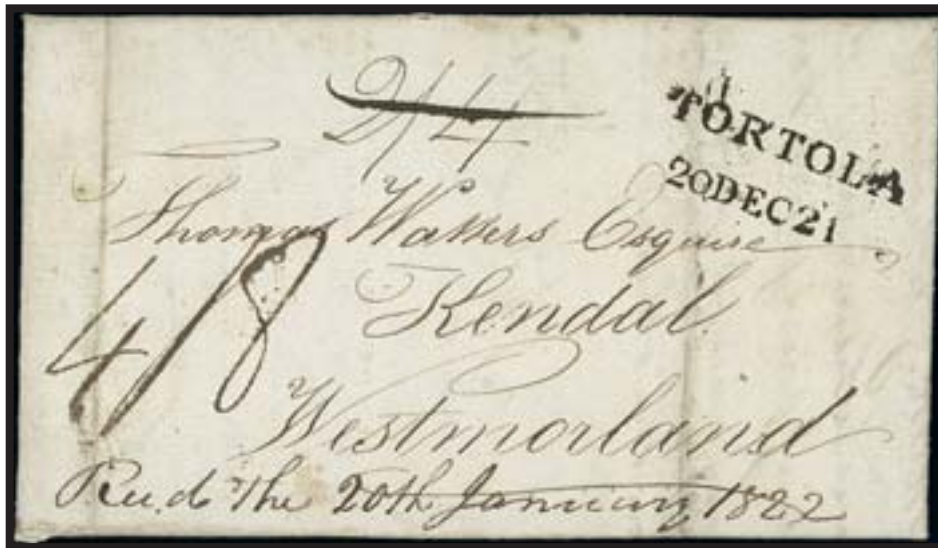 2/4
TORTOLA
20DEC21
Thomas Walkers Esquire
4/8
Kendal
Westmorland
Rec.d the 20th January 1822